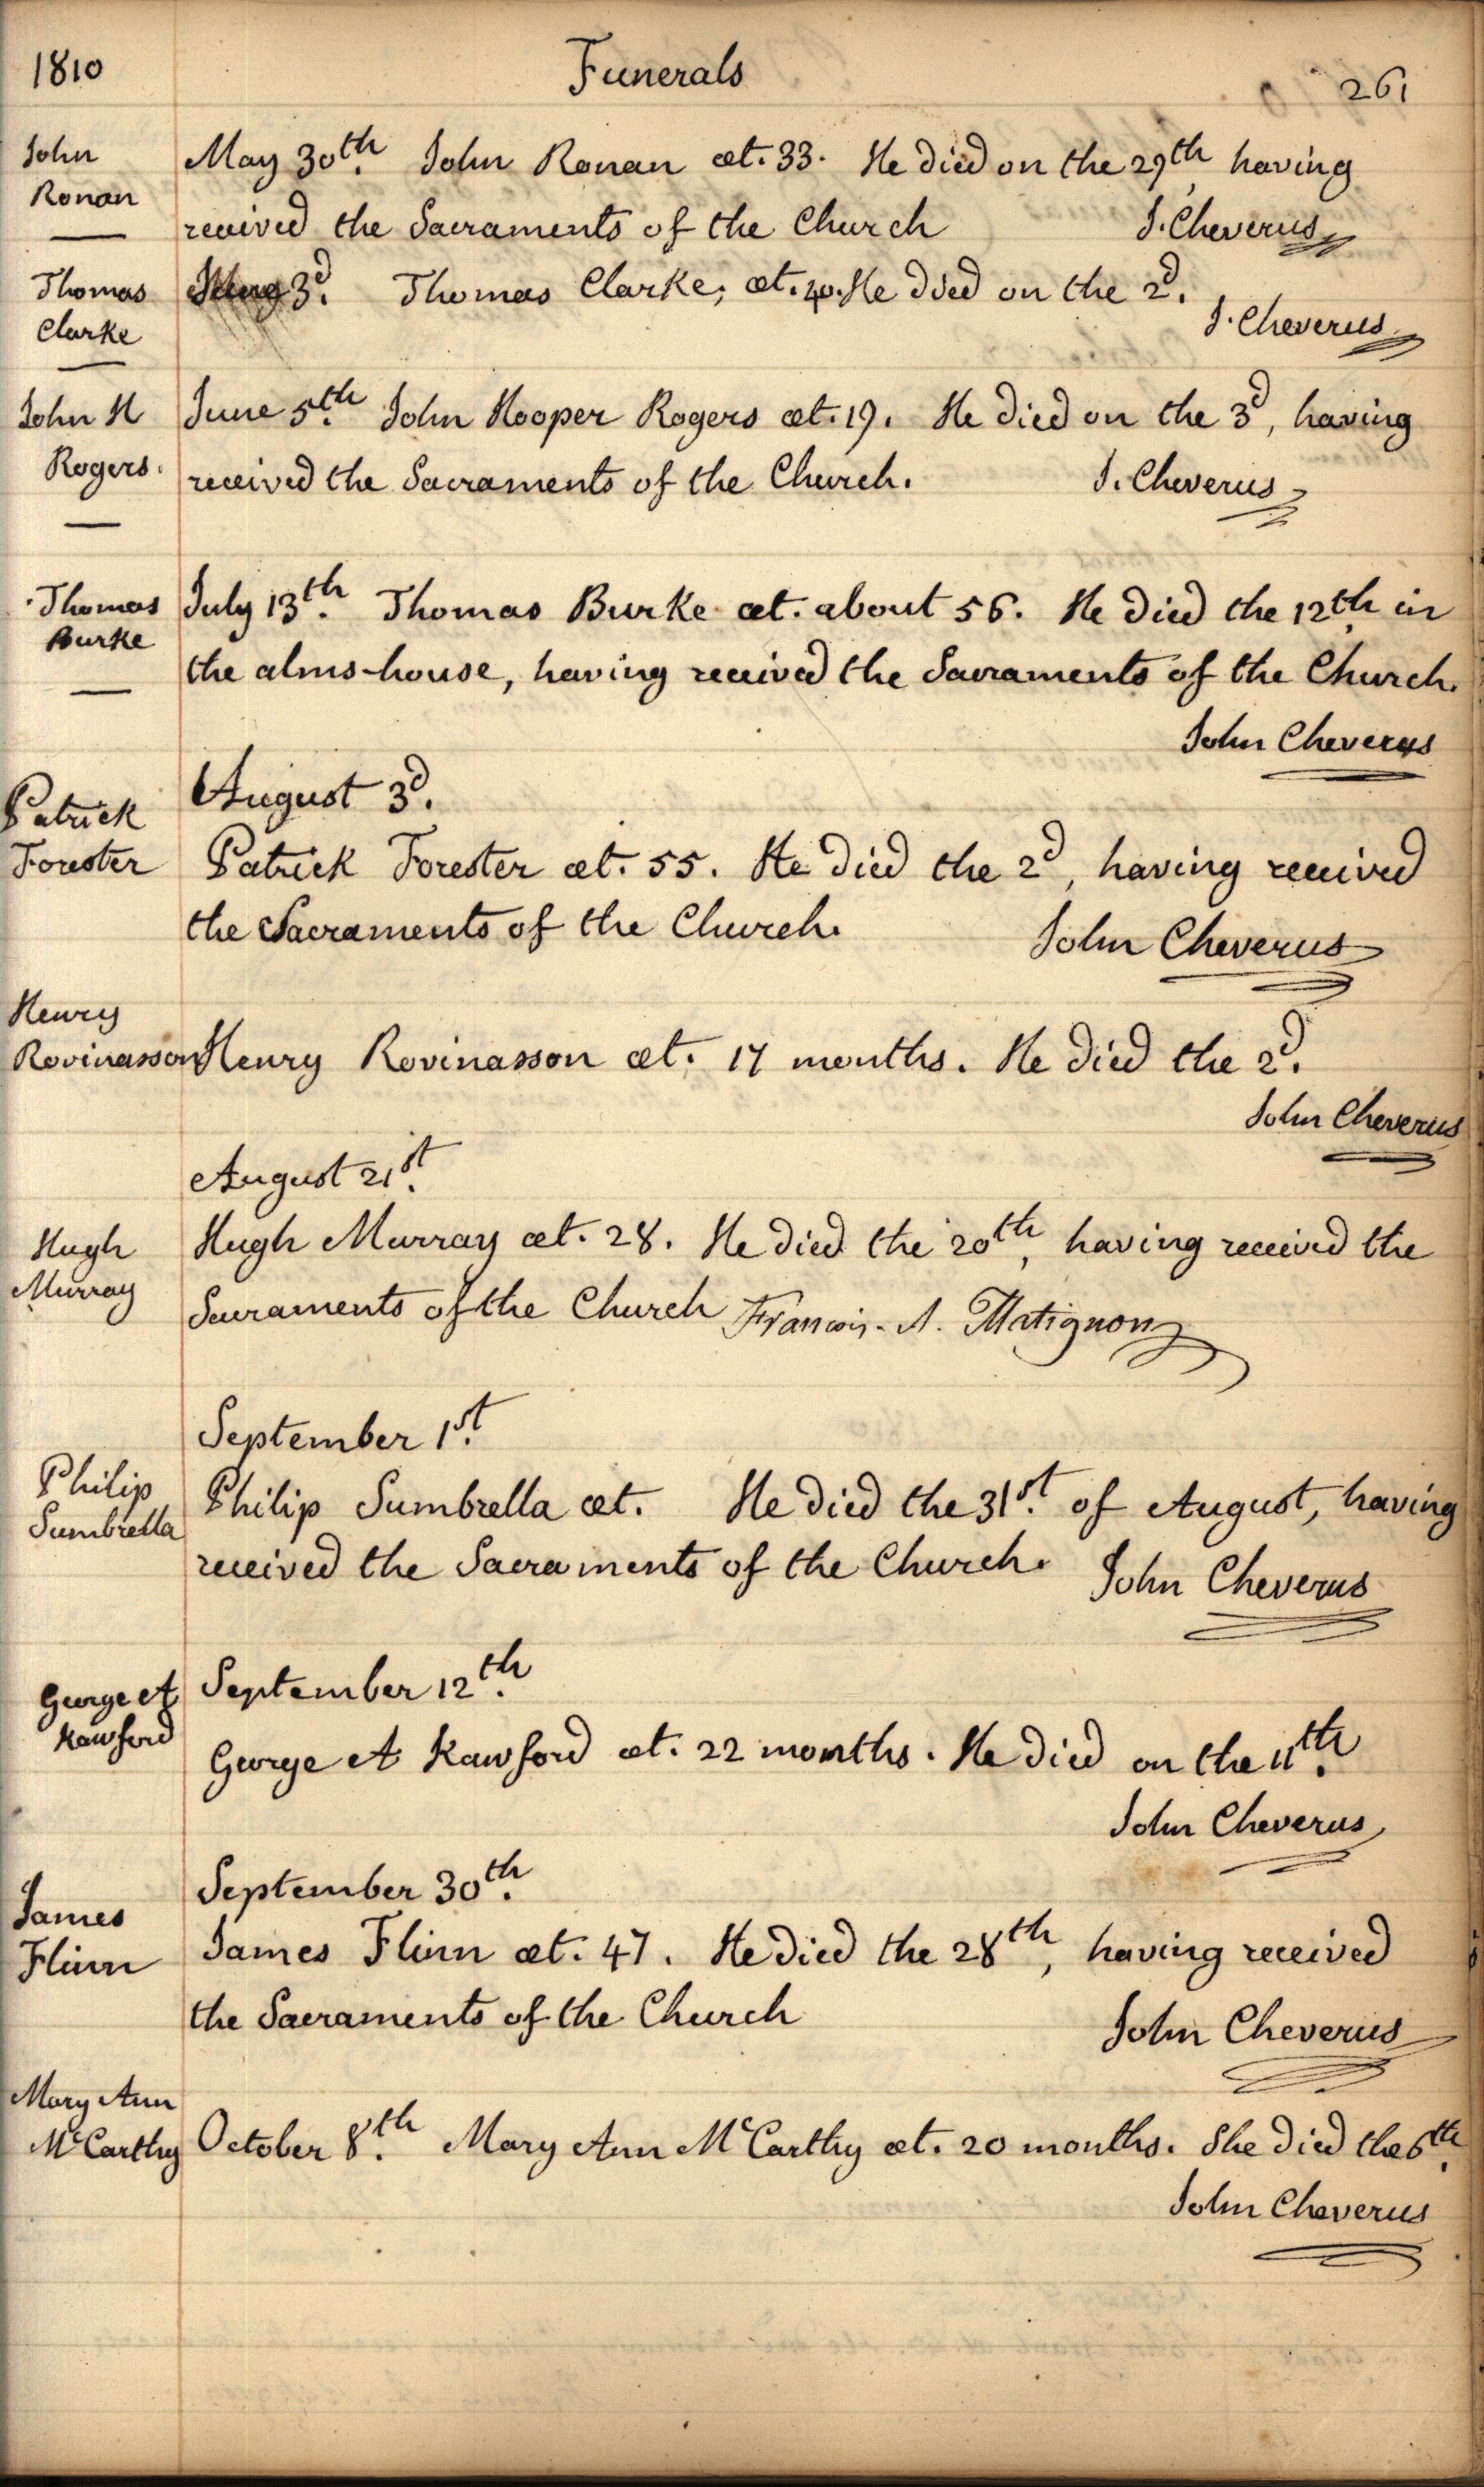 1810
Funerals
261
John
Ronan
May 30th. John Ronan æt. 33. He died on the 29th, having
received the Sacraments of the Church
J. Cheverus
Thomas
Clarke
3d. Thomas Clarke, æt. 40. He died on the 2d.
J. Cheverus
John H
Rogers.
June 5th. John Hooper Rogers æt. 19. He died on the 3d, having
received the Sacraments of the Church.
J. Cheverus
Thomas
Burke
July 13th. Thomas Burke æt. about 56. He died the 12th in
the alms-house, having received the Sacraments of the Church.
John Cheverus
August 3d.
Patrick
Forester
Patrick Forester æt. 55. He died the 2d, having received
the Sacraments of the Church.
John Cheverus
Henry
Rovinasson
Henry Rovinasson æt. 17 months. He died the 2d.
John Cheverus
August 21st.
Hugh
Murray
Hugh Murray æt. 28. He died the 20th, having received the
Sacraments of the Church Francois. A. Matignon
September 1st.
Philip
Sumbrella
Philip Sumbrella æt. He died the 31st. of August, having
received the Sacraments of the Church. John Cheverus
George A
Kawford
September 12th.
George A Kawford æt. 22 months. He died on the 11th.
John Cheverus
September 30th.
James
Flinn
James Flinn æt. 47. He died the 28th, having received
the Sacraments of the Church
John Cheverus
Mary Ann
McCarthy
October 8th. Mary Ann McCarthy æt. 20 months. She died the 6th.
John Cheverus